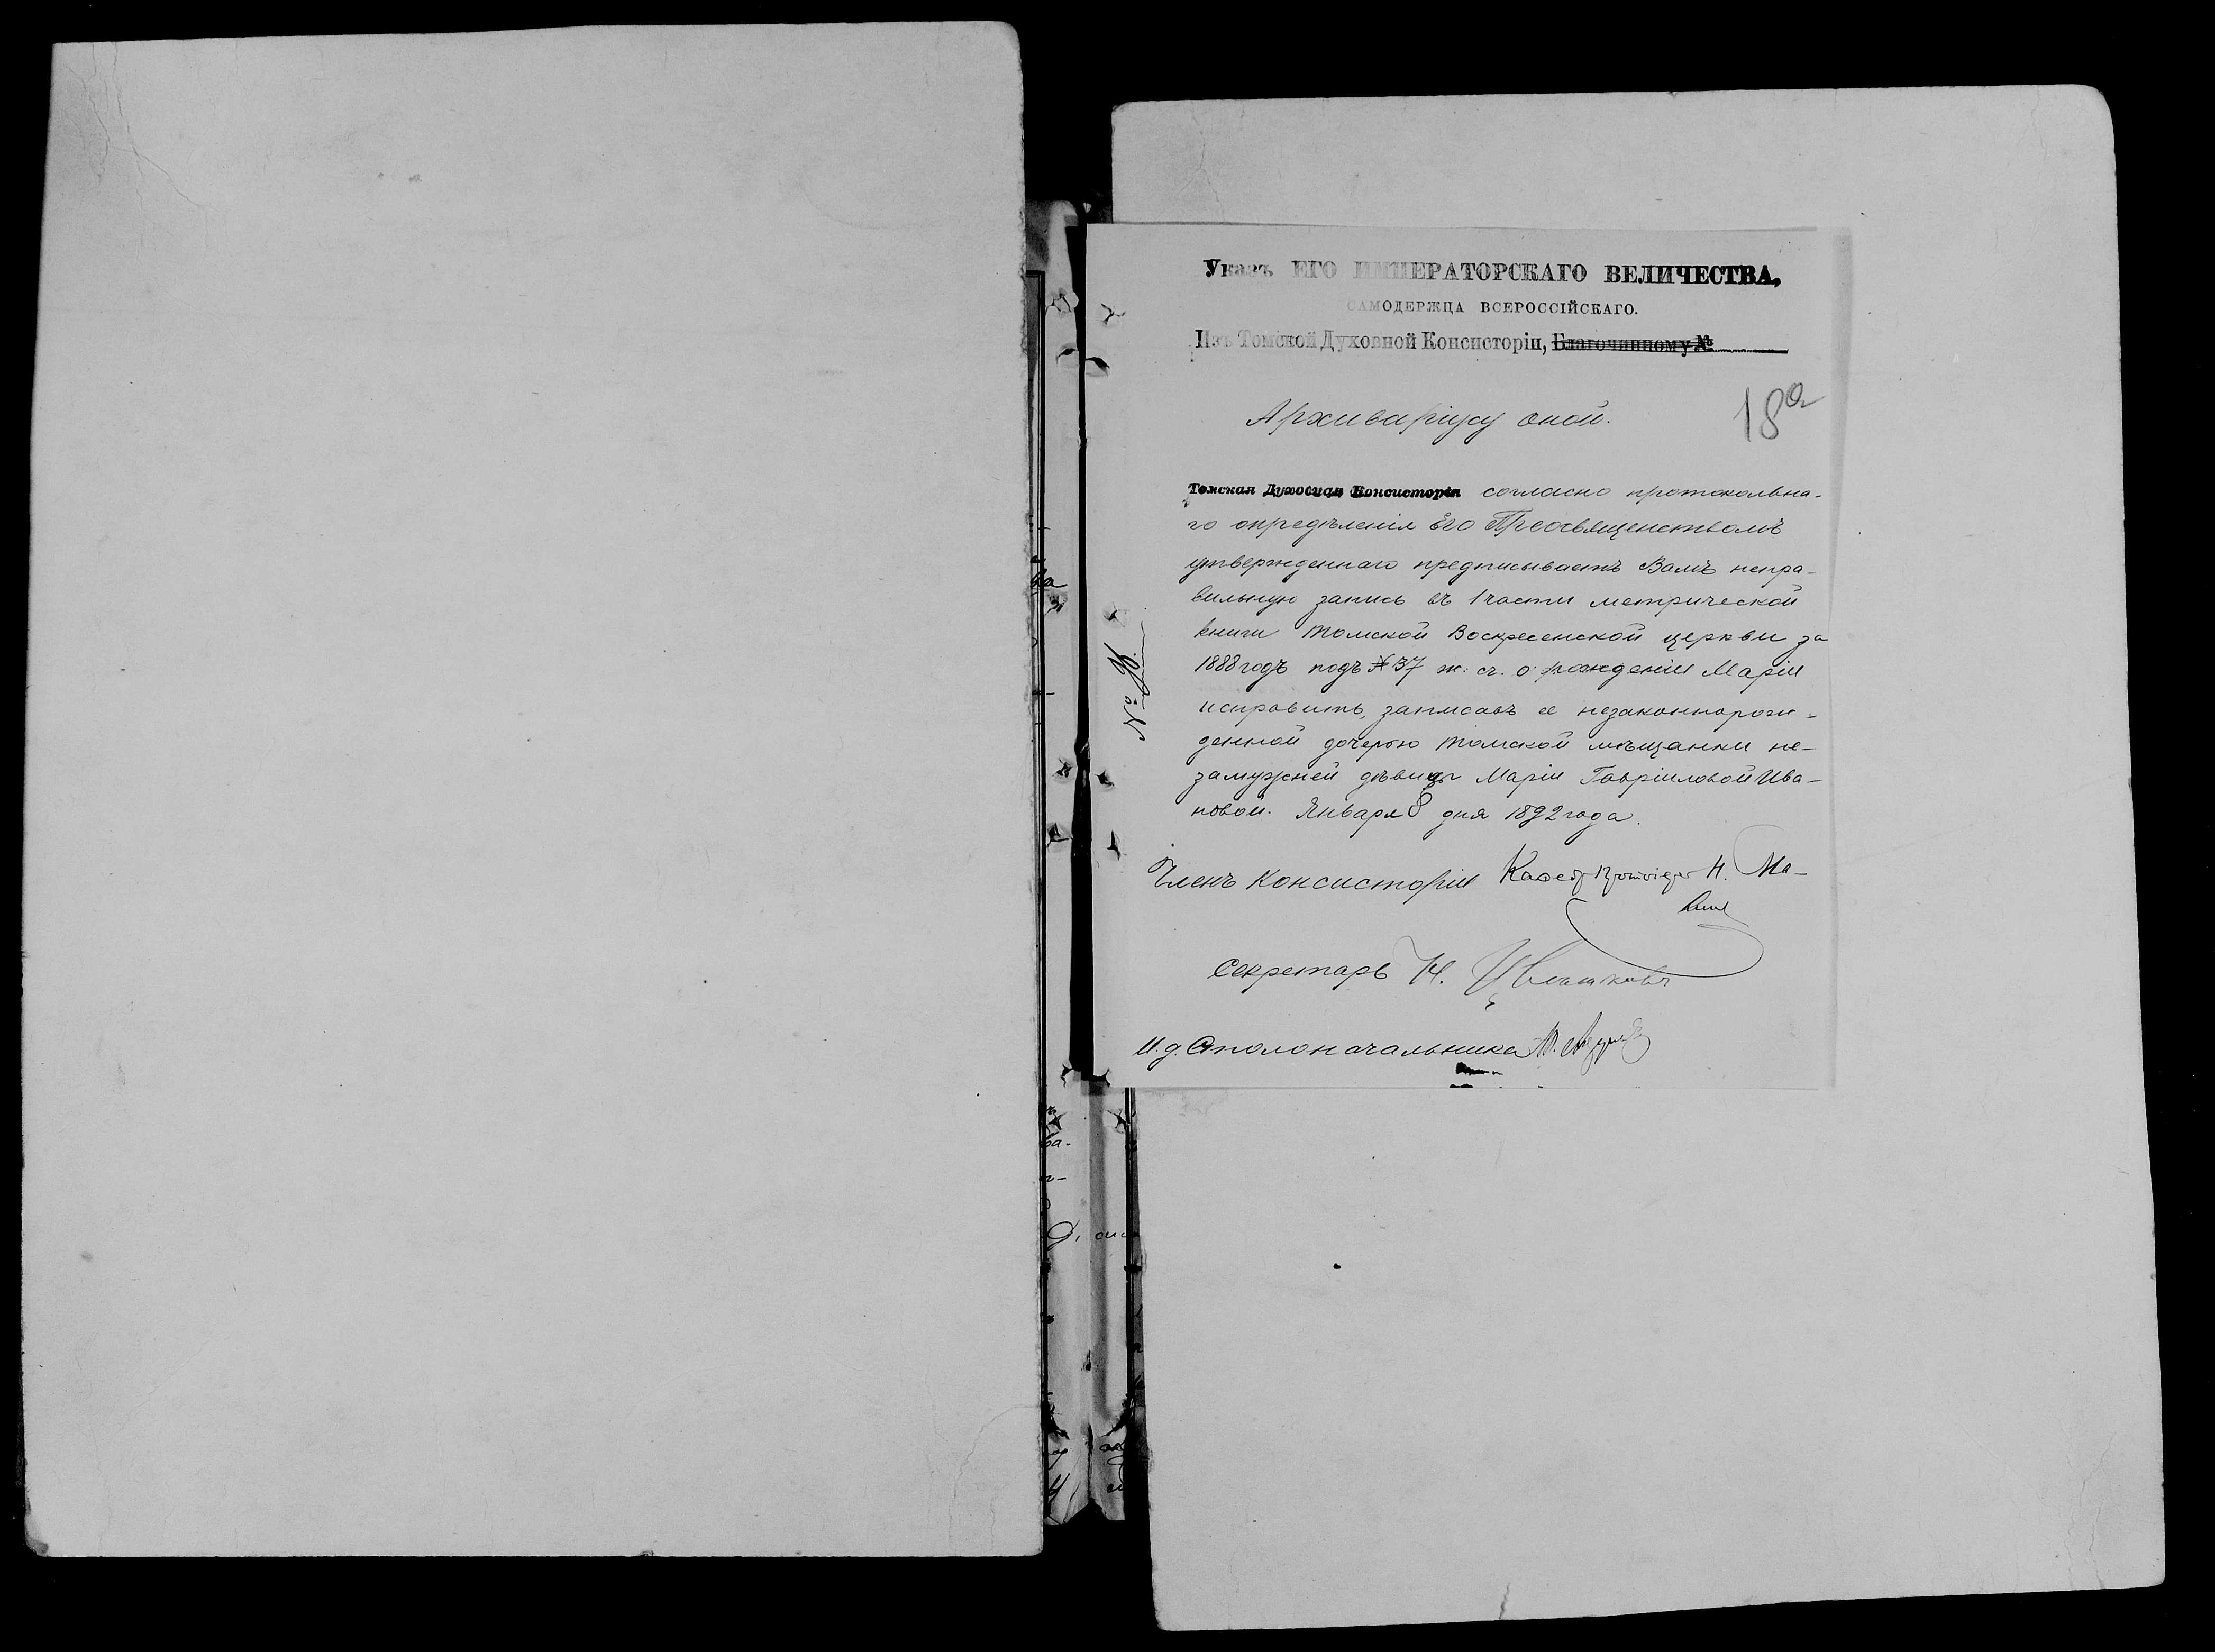 Указъ ЕГО ИМПЕРАТОРСКАГО ВЕЛИЧЕСТВА,
САМОДЕРЖЦА ВСЕРОССІЙСКАГО.
Изъ Томской Духовной Консисторіи, Благочинному №
Архиваріусу оной.
18а
Томская Духовная Консисторія согласно протокольна-
го опредѣленія Его Преосвященствомъ
утвержденнаго предписываетъ Вамъ непра-
вильную запись въ 1 части метрической
книги Томской Воскресенской церкви за
1888 годъ подъ № 37 ж. сч. о рожденіи Маріи
исправить, записавъ ее незаконнорож-
денной дочерью томской мѣщанки не-
замужней дѣвицы Маріи Гавріиловой Ива-
новой. Января 8 дня 1892 года.
Членъ Консисторіи Каѳедр. Н. Ма-
Секретарь
И. д. Столоначальника
№